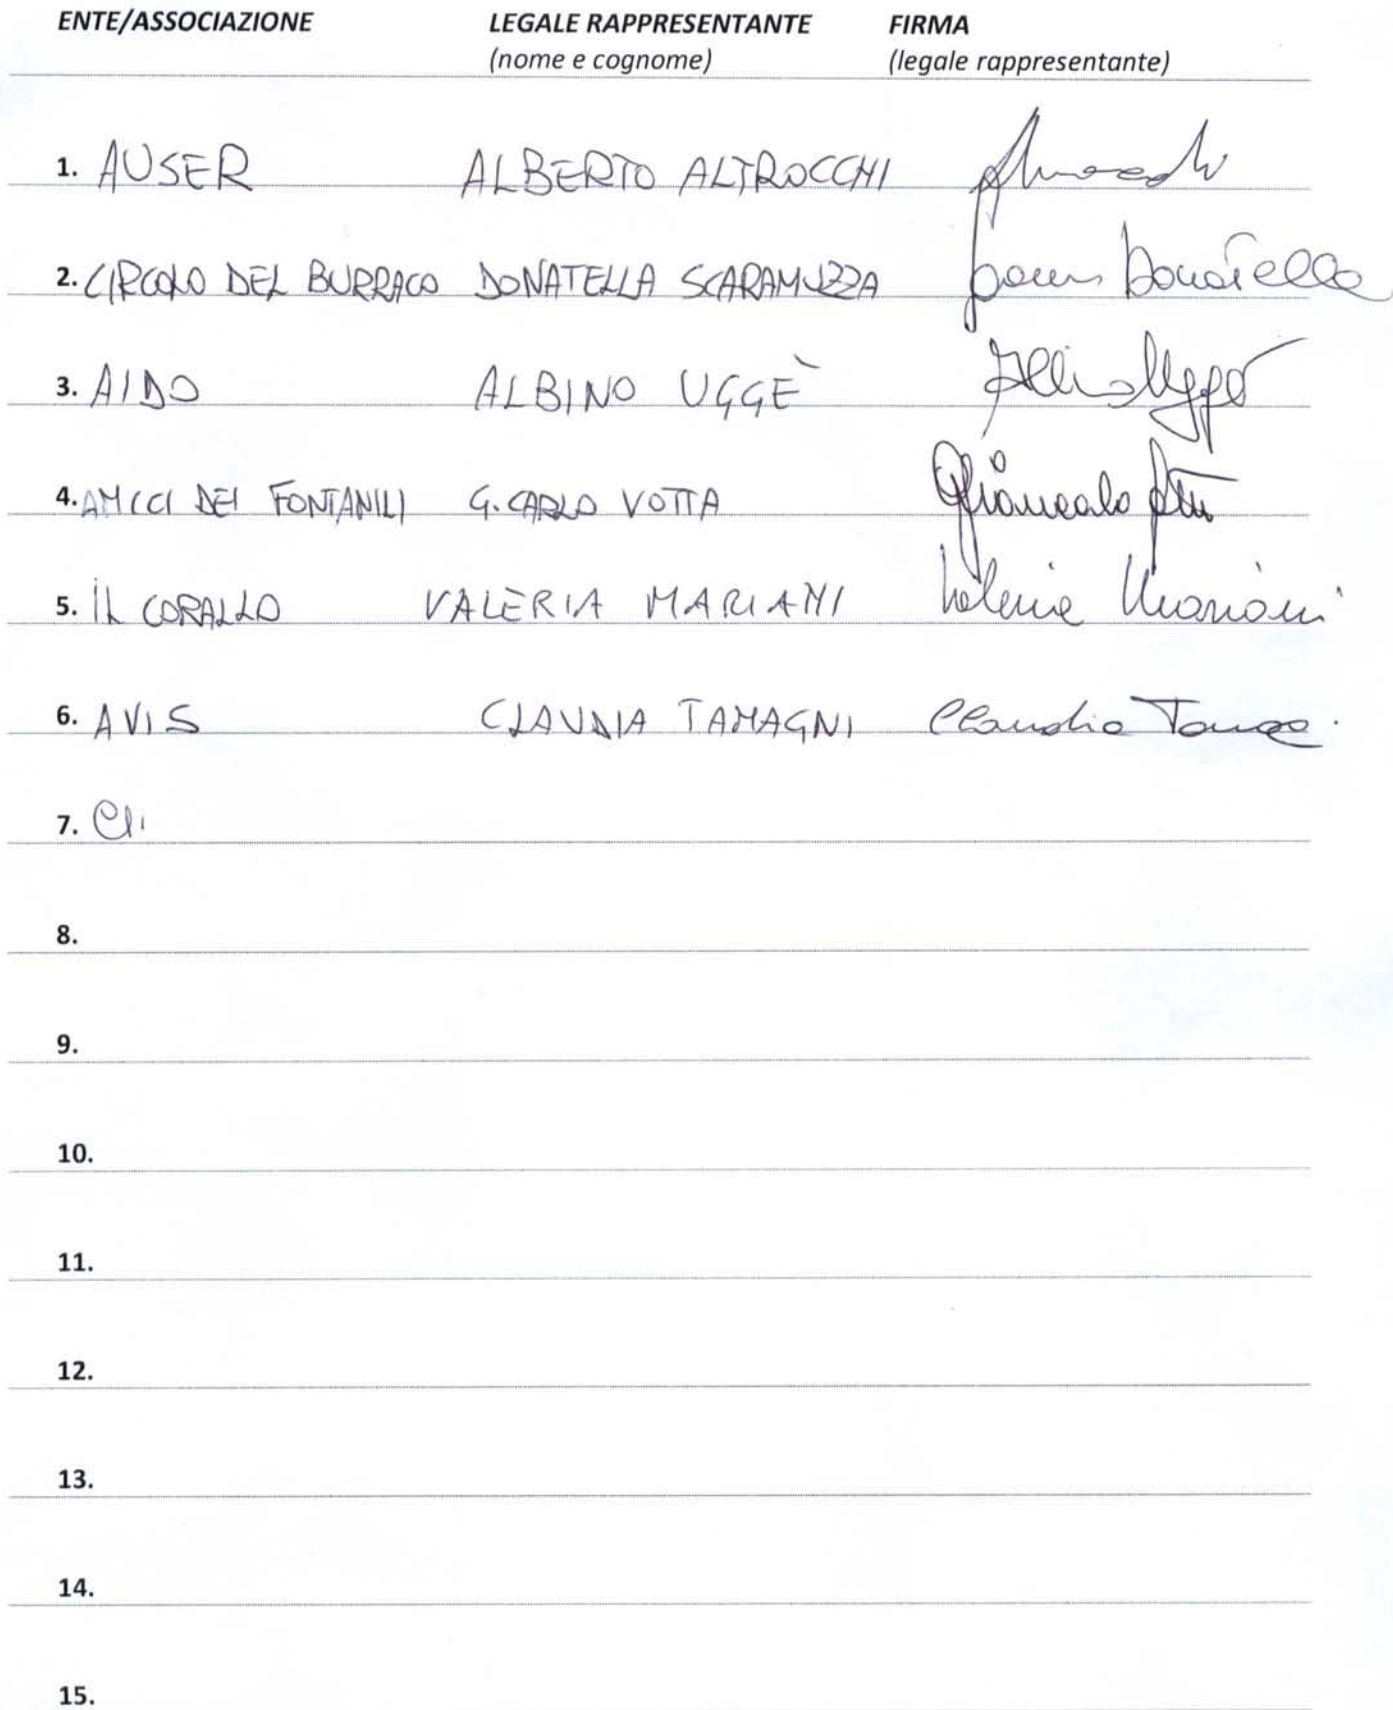 ENTE/ASSOCIAZIONE LEGALE RAPPRESENTANTE FIRMA
(nome e cognome) (legale rappresentante)
1. AUSER ALBERTO ALTROCCHI
2. CIRCOLO DEL BURRACO DONATELLA SCARAMUZZA Donatella
3. AIDO ALBINO UGGÈ
4. AMICI DEI FONTANILI G. CARLO VOTTA Giancarlo
5. IL CORALLO VALERIA MARIANI Valeria Mariani
6. AVIS CLAUDIA TAMAGNI Claudia
7.
8.
9.
10.
11.
12.
13.
14.
15.